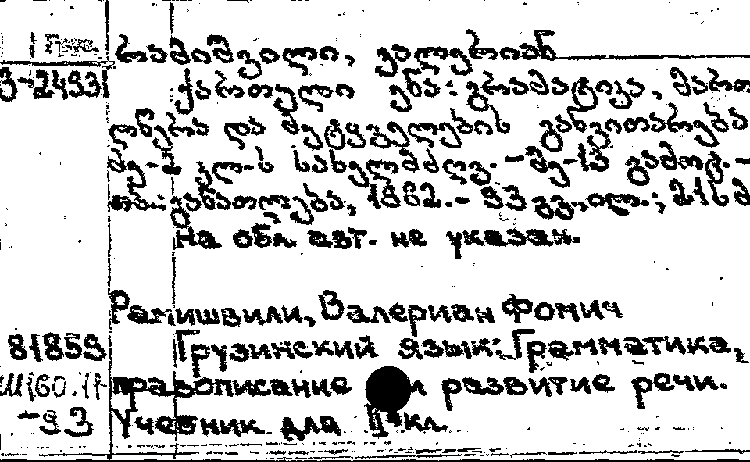 Груз.
რამიშვილი, ვალერიან
3-24931 ქართული ენა: გრამატიკა, მართ
ლწერა და მეტყველების განვითარება
მე-2 კლ-ს სახელმძღვ. - მე-13 გამოც. -
თბ.: განათლება, 1982. - 93 გვ., ილ.; 21სმ
На обл. авт. не указан.
Рамишвили, Валериан Фомич
81859 Грузинский язык: Грамматика,
Ш160.11 правописание и развитие речи.
-93 Учебник для II кл.